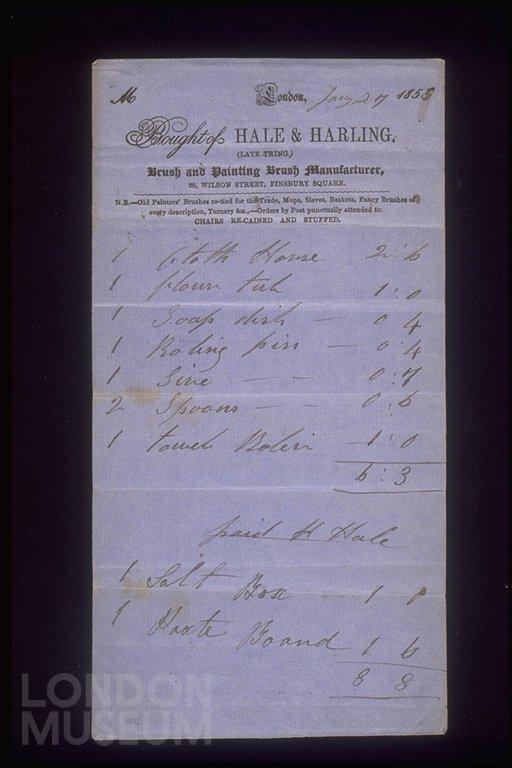 M London, Jany 27 1853
Bought of HALE & HARLING,
(LATE TRING,)
Brush and Painting Brush Manufacturer,
28, WILSON STREET, FINSBURY SQUARE.
N.B.—Old Painters' Brushes re-tied for the Trade, Mops, Sieves, Baskets, Fancy Brushes of
every description, Turnery &c.,—Orders by Post punctually attended to.
CHAIRS RE-CAINED AND STUFFED.
1 Cloth Horse 2 : 6
1 flour tub 1 : 0
1 Soap dish — 0 4
1 Roling pin — 0 : 4
1 Sive — — 0 : 7
2 Spoons — — 0 : 6
1 towel Roler 1 : 0
6 : 3
paid H Hale
1 Salt Box — 1 0
1 Paste Board 1 6
8 8
LONDON
MUSEUM